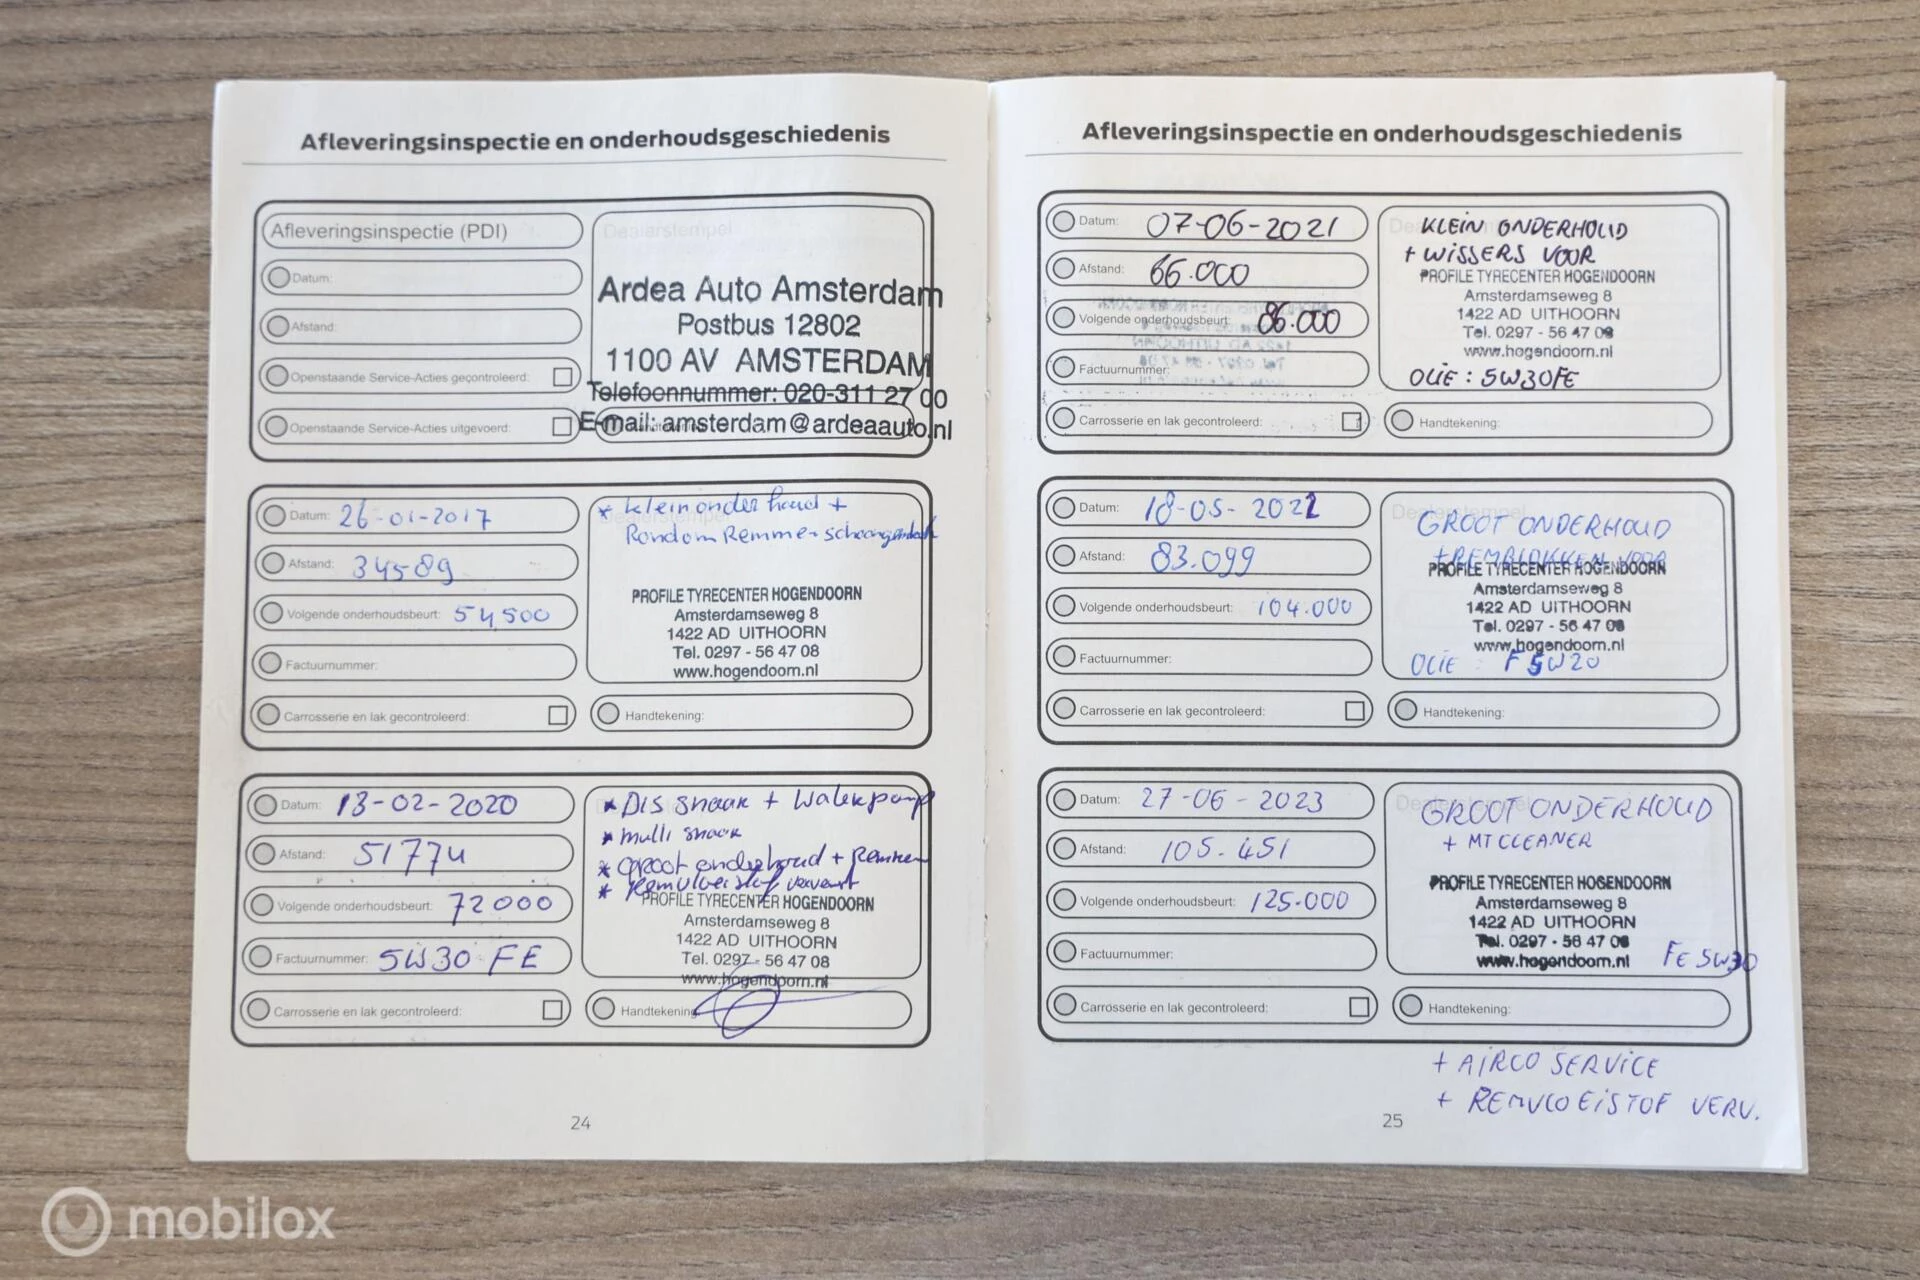 Afleveringsinspectie en onderhoudsgeschiedenis
Afleveringsinspectie (PDI)
Dealerstempel
Datum:
Afstand:
Openstaande Service-Acties gecontroleerd:
Openstaande Service-Acties uitgevoerd:
Ardea Auto Amsterdam
Postbus 12802
1100 AV AMSTERDAM
Telefoonnummer: 020-311 27 00
E-mail: amsterdam@ardeaauto.nl
Datum: 26-01-2017
Afstand: 34589
Volgende onderhoudsbeurt: 54,500
Factuurnummer:
Carrosserie en lak gecontroleerd:
* klein onder houd +
Rondom Remmen
PROFILE TYRECENTER HOGENDOORN
Amsterdamseweg 8
1422 AD UITHOORN
Tel. 0297 - 56 47 08
www.hogendoorn.nl
Handtekening:
Datum: 13-02-2020
Afstand: 51774
Volgende onderhoudsbeurt: 72000
Factuurnummer: 5W30 FE
Carrosserie en lak gecontroleerd:
* Dis snaar + Waterpomp
* multi snaar
* Groot onderhoud + Remmen
* Remvloeistof ververst
PROFILE TYRECENTER HOGENDOORN
Amsterdamseweg 8
1422 AD UITHOORN
Tel. 0297 - 56 47 08
www.hogendoorn.nl
Handtekening:
24
Afleveringsinspectie en onderhoudsgeschiedenis
Datum: 07-06-2021
Afstand: 66.000
Volgende onderhoudsbeurt: 86.000
Factuurnummer:
Carrosserie en lak gecontroleerd:
KLEIN ONDERHOUD
+ WISSERS VOOR
PROFILE TYRECENTER HOGENDOORN
Amsterdamseweg 8
1422 AD UITHOORN
Tel. 0297 - 56 47 08
www.hogendoorn.nl
OLIE: 5W30FE
Handtekening:
Datum: 18-05-2022
Afstand: 83.099
Volgende onderhoudsbeurt: 104.000
Factuurnummer:
Carrosserie en lak gecontroleerd:
Dealerstempel
GROOT ONDERHOUD
+ REMBLOKKEN VOOR
PROFILE TYRECENTER HOGENDOORN
Amsterdamseweg 8
1422 AD UITHOORN
Tel. 0297 - 56 47 08
www.hogendoorn.nl
OLIE : F 5W20
Handtekening:
Datum: 27-06-2023
Afstand: 105.451
Volgende onderhoudsbeurt: 125.000
Factuurnummer:
Carrosserie en lak gecontroleerd:
Dealerstempel
GROOT ONDERHOUD
+ MTCLEANER
PROFILE TYRECENTER HOGENDOORN
Amsterdamseweg 8
1422 AD UITHOORN
Tel. 0297 - 56 47 08
www.hogendoorn.nl
FE 5W30
Handtekening:
+ AIRCO SERVICE
+ REMVLOEISTOF VERV.
25
mobilox